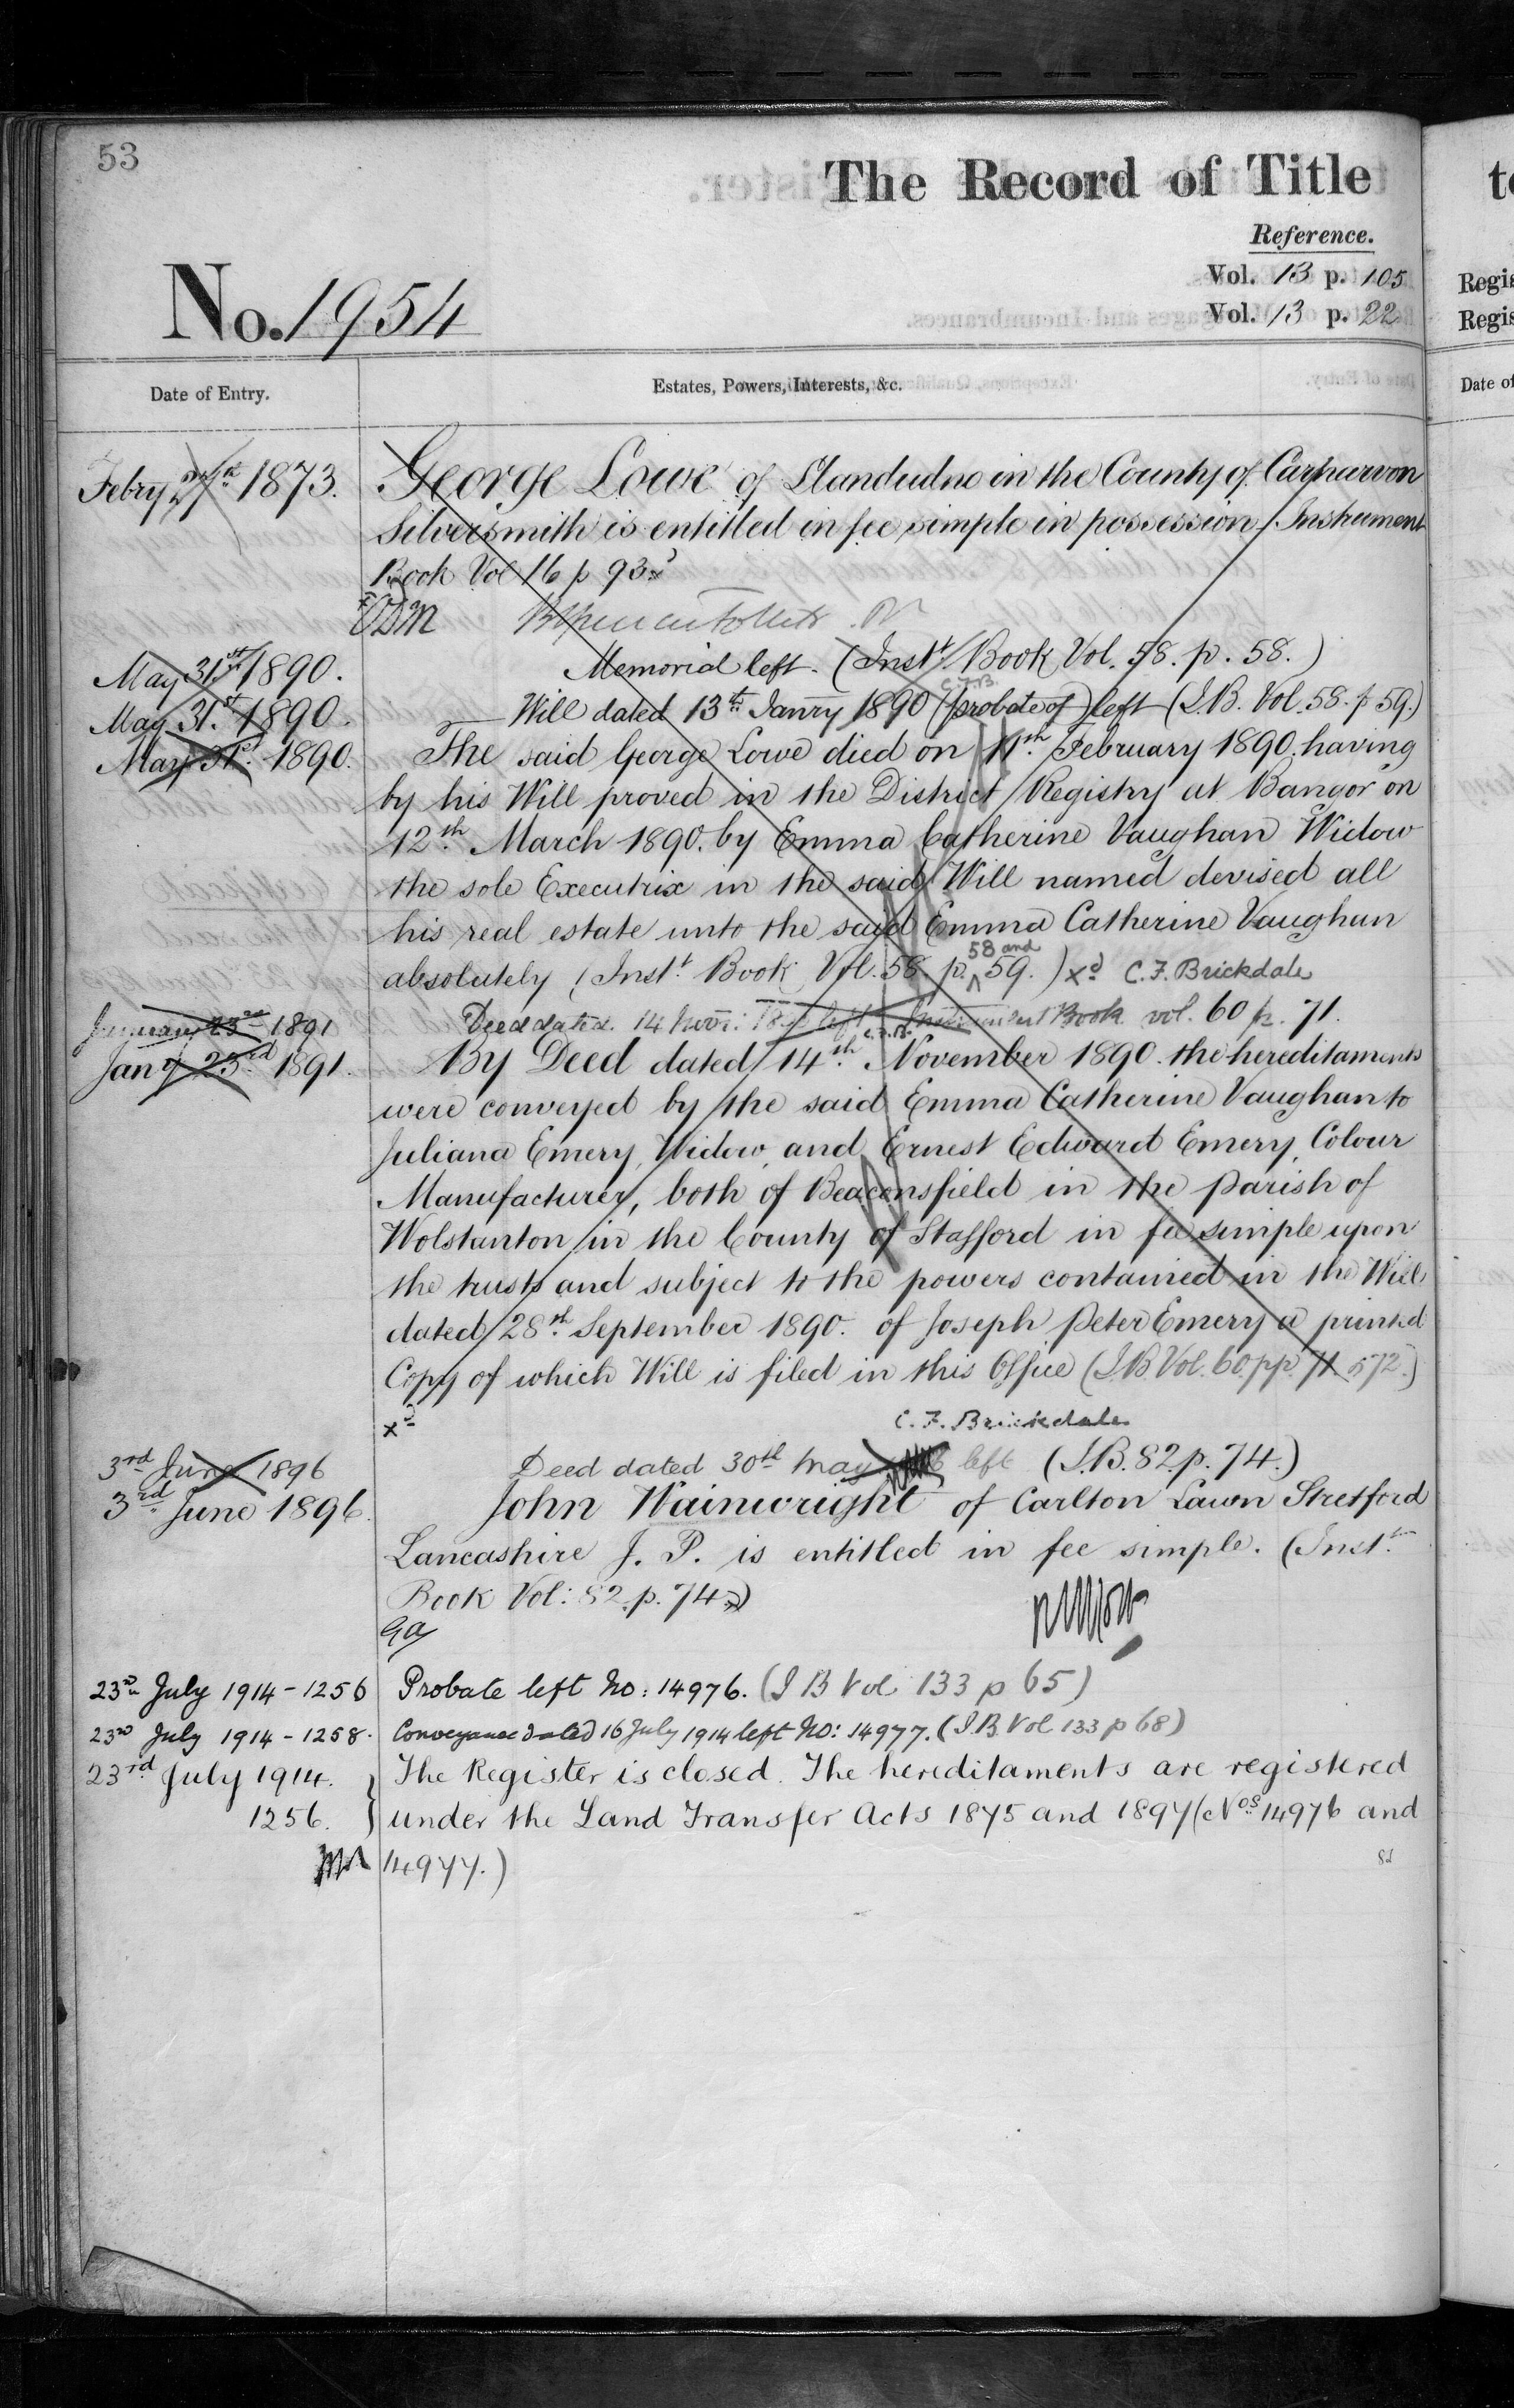 53
The Record of Title
Reference.
Vol. 13 p. 105
Vol. 13 p. 22
No. 1954
Date of Entry.
Estates, Powers, Interests, &c.
Febry 1873.
George Lowe of Llandudno in the County of Carnarvon
Silversmith is entitled in fee simple in possession (Instrument
Book Vol 16 p 93
May 31st 1890.
Memorial left. (Inst. Book Vol. 58. p. 58.)
C.F.B.
May 31st 1890.
Will dated 13th Janry 1890 (probate of) left (I.B. Vol. 58. p 59.)
May 31st 1890.
The said George Lowe died on 11th February 1890. having
by his Will proved in the District Registry at Bangor on
12th March 1890. by Emma Catherine Vaughan Widow
the sole Executrix in the said Will named devised all
his real estate unto the said Emma Catherine Vaughan
absolutely (Inst. Book Vol. 58. p. 58 and 59.) xd C. F. Brickdale
January 23rd 1891
Deed dated 14 Novr: 1890 left Instrument Book vol. 60 p. 71.
C.F.B.
Jany 23rd 1891.
By Deed dated 14th November 1890. the hereditaments
were conveyed by the said Emma Catherine Vaughan to
Juliana Emery, Widow, and Ernest Edward Emery, Colour
Manufacturer, both of Beaconsfield in the Parish of
Wolstanton in the County of Stafford in fee simple upon
the trusts and subject to the powers contained in the Will
dated 28th September 1890. of Joseph Peter Emery a printed
Copy of which Will is filed in this Office (I.B. Vol. 60. pp. 71 & 72.)
xd
C. F. Brickdale
3rd June 1896
Deed dated 30th May left (I.B. 82. p. 74.)
3rd June 1896.
John Wainwright of Carlton Lawn Stretford
Lancashire J. P. is entitled in fee simple. (Inst.
Book Vol: 82. p. 74.)
23rd July 1914 - 1256
Probate left No: 14976. (I B Vol 133 p 65)
23rd July 1914 - 1258.
Conveyance dated 16 July 1914 left No: 14977. (I.B. Vol 133 p 68)
23rd July 1914.
The Register is closed. The hereditaments are registered
1256.
under the Land Transfer Acts 1875 and 1897 (Nos 14976 and
14977.)
Regis
Regis
Date of